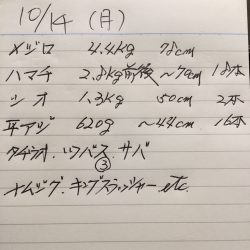 10/14 (月)
メジロ 4.4kg 78cm
ハマチ 2.8kg前後 ~70cm 18本
シオ 1.3kg 50cm 2本
平アジ 620g ~44cm 16本
タチウオ、ツバス、サバ
③
ナムジグ、キングスラッシャー etc.